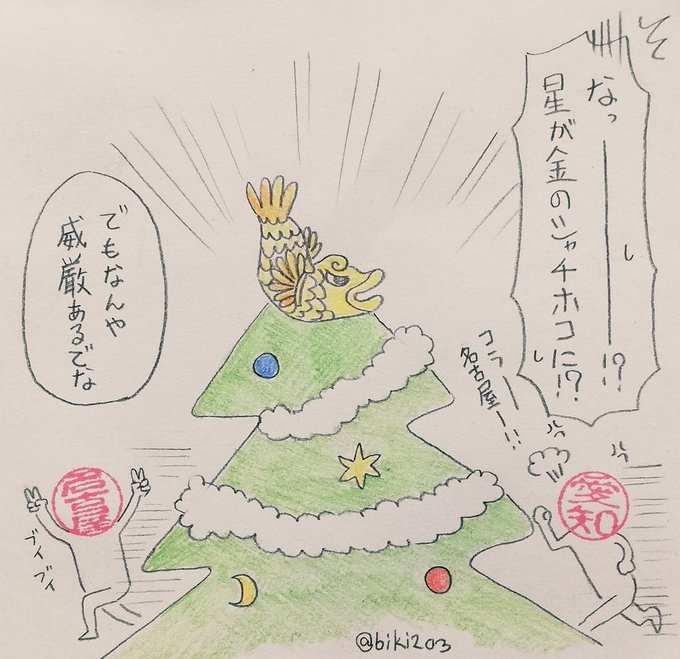 なっ――――!?
星が金のシャチホコに!?
でもなんや
威厳あるでな
コラ――
名古屋ー!!
名古屋
ブイブイ
愛知
@biki203